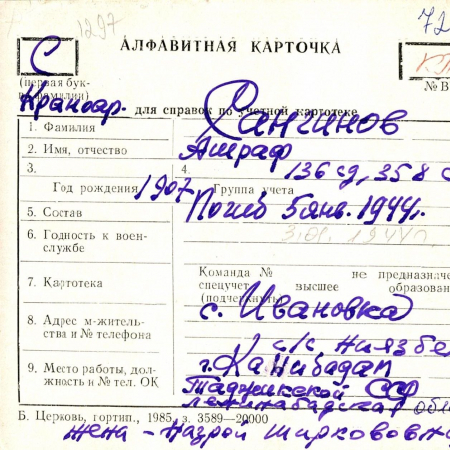 1297
72
С
АЛФАВИТНАЯ КАРТОЧКА
(первая бук-
ва фамилии)
№ В
Краноар. для справок по учетной картотеке
1. Фамилия
Сангинов
2. Имя, отчество
Ашраф
3.
4.
136 сд, 358 с
Год рождения 1907
Группа учета
5. Состав
Погиб 5 янв. 1944г.
6. Годность к воен-
службе
3.01.1944г.
Команда № не предназначе
спецучет, высшее образован
(подчеркнуть)
7. Картотека
с. Ивановка
8. Адрес м-житель-
ства и № телефона
с/с Ниязбе
9. Место работы, дол-
жность и № тел. ОК
г. Канибадам
Таджикской ССР
Ленинабадская обл
Б. Церковь, гортип., 1985, з. 3589—20000
жена - Назрой Ширкововн